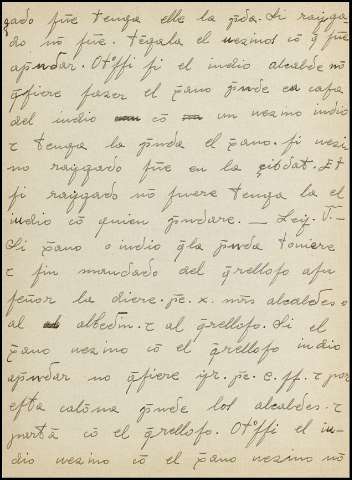 gado fue tenga elle la p̄da. Si raygado
do nō fue. tēgala el uezino cō q̄ fue
apēndar. Otoſſi ſi el iudio alcalde nō
q̄ſiere fazer el xp̄ano pēnde en caſa
del iudio cō un uezino iudio
τ tenga la pēnda el xp̄ano. ſi uezino
no raygado fue en la çibdat. Et
ſi raygado nō fuere tenga la el
iudio cō quien pēndare. — Ley. V. —
Si xp̄ano o iudio q̄ la pēnda touiere
τ ſin mandado del q̄relloſo aſu
ſeñor la diere. pe. x. mr̄s alcaldes o
al albedin. τ al q̄relloſo. Si el
xp̄ano uezino cō el q̄relloſo iudio
apēndar no q̄ſiere yr. pe. e. ſſ. τ por
eſta caloña pēnde los alcaldes. τ
partā cō el q̄relloſo. Otoſſi el iu-
dio uezino cō el xp̄ano uezino nō